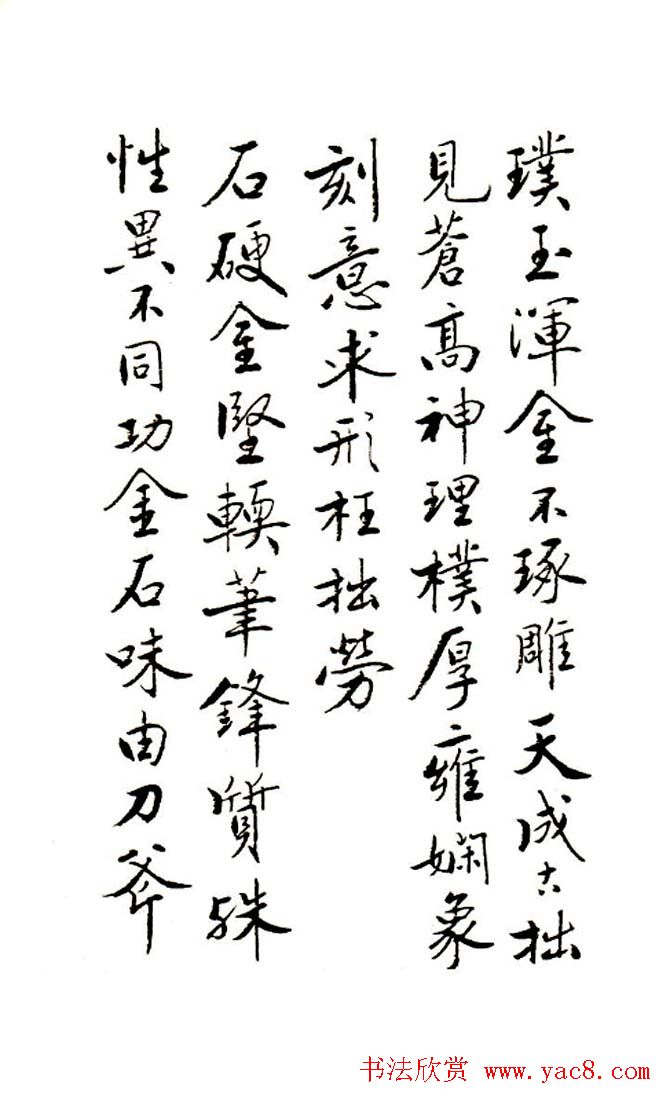 璞玉渾金不琢雕天成古拙
見蒼高神理樸厚雍嫻象
刻意求形枉拙勞
石硬金堅輭筆鋒質殊
性異不同功金石味由刀斧
书法欣赏 www.yac8.com